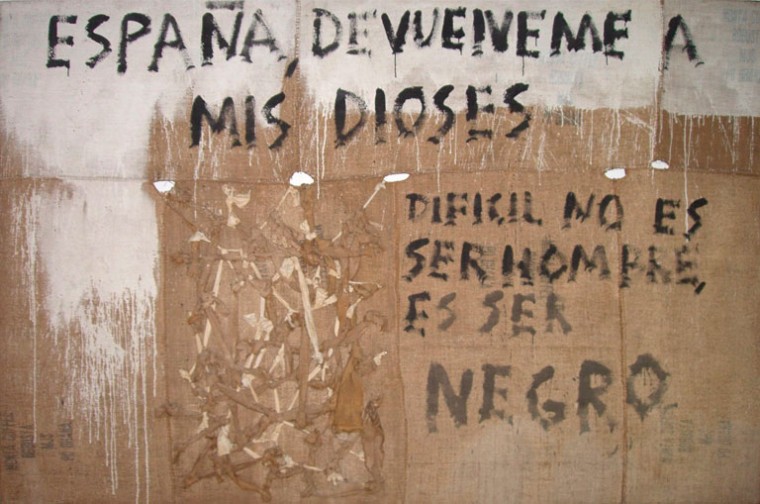 ESPAÑA, DEVUELVEME A
MIS DIOSES
DIFICIL NO ES
SER HOMBRE,
ES SER
NEGRO